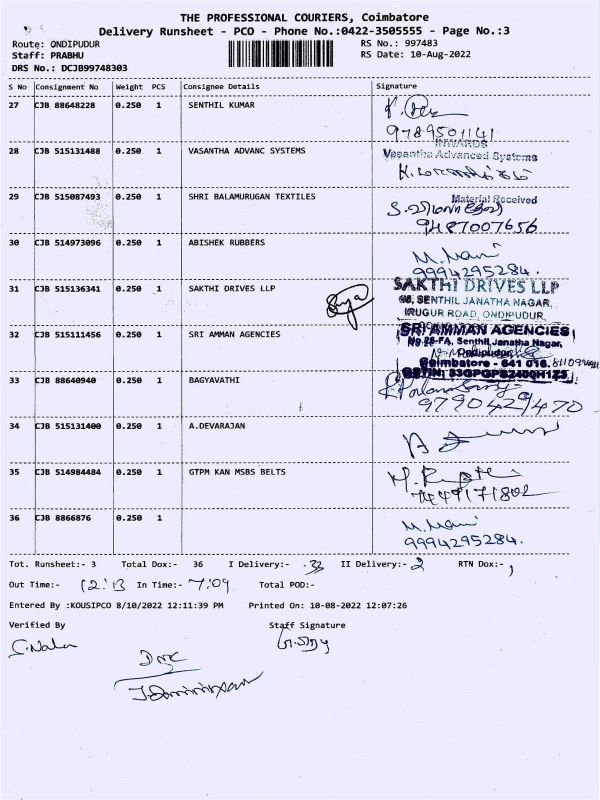 THE PROFESSIONAL COURIERS, Coimbatore
Delivery Runsheet - PCO - Phone No.:0422-3505555 - Page No.:3
Route: ONDIPUDUR RS No.: 997483
Staff: PRABHU RS Date: 10-Aug-2022
DRS No.: DCJB99748303
S No Consignment No Weight PCS Consignee Details Signature
27 CJB 88648228 0.250 1 SENTHIL KUMAR
9789501141
INWARDS
28 CJB 515131488 0.250 1 VASANTHA ADVANC SYSTEMS Vasantha Advanced Systems
29 CJB 515087493 0.250 1 SHRI BALAMURUGAN TEXTILES Material Received
9487007656
30 CJB 514973096 0.250 1 ABISHEK RUBBERS M. Mani
9994295284.
31 CJB 515136341 0.250 1 SAKTHI DRIVES LLP SAKTHI DRIVES LLP
SENTHIL JANATHA NAGAR,
IRUGUR ROAD, ONDIPUDUR,
32 CJB 515111456 0.250 1 SRI AMMAN AGENCIES SRI AMMAN AGENCIES
Senthil Janatha Nagar,
Ondipudur
Coimbatore - 641 016.
33 CJB 88640940 0.250 1 BAGYAVATHI
9790429470
34 CJB 515131400 0.250 1 A.DEVARAJAN
35 CJB 514984484 0.250 1 GTPM KAN MSBS BELTS
7449171802
36 CJB 8866876 0.250 1 M. Mani
9994295284.
Tot. Runsheet:- 3 Total Dox:- 36 I Delivery:- 33 II Delivery:- 2 RTN Dox:- 1
Out Time:- 12:13 In Time:- 7:09 Total POD:-
Entered By :KOUSIPCO 8/10/2022 12:11:39 PM Printed On: 10-08-2022 12:07:26
Verified By Staff Signature